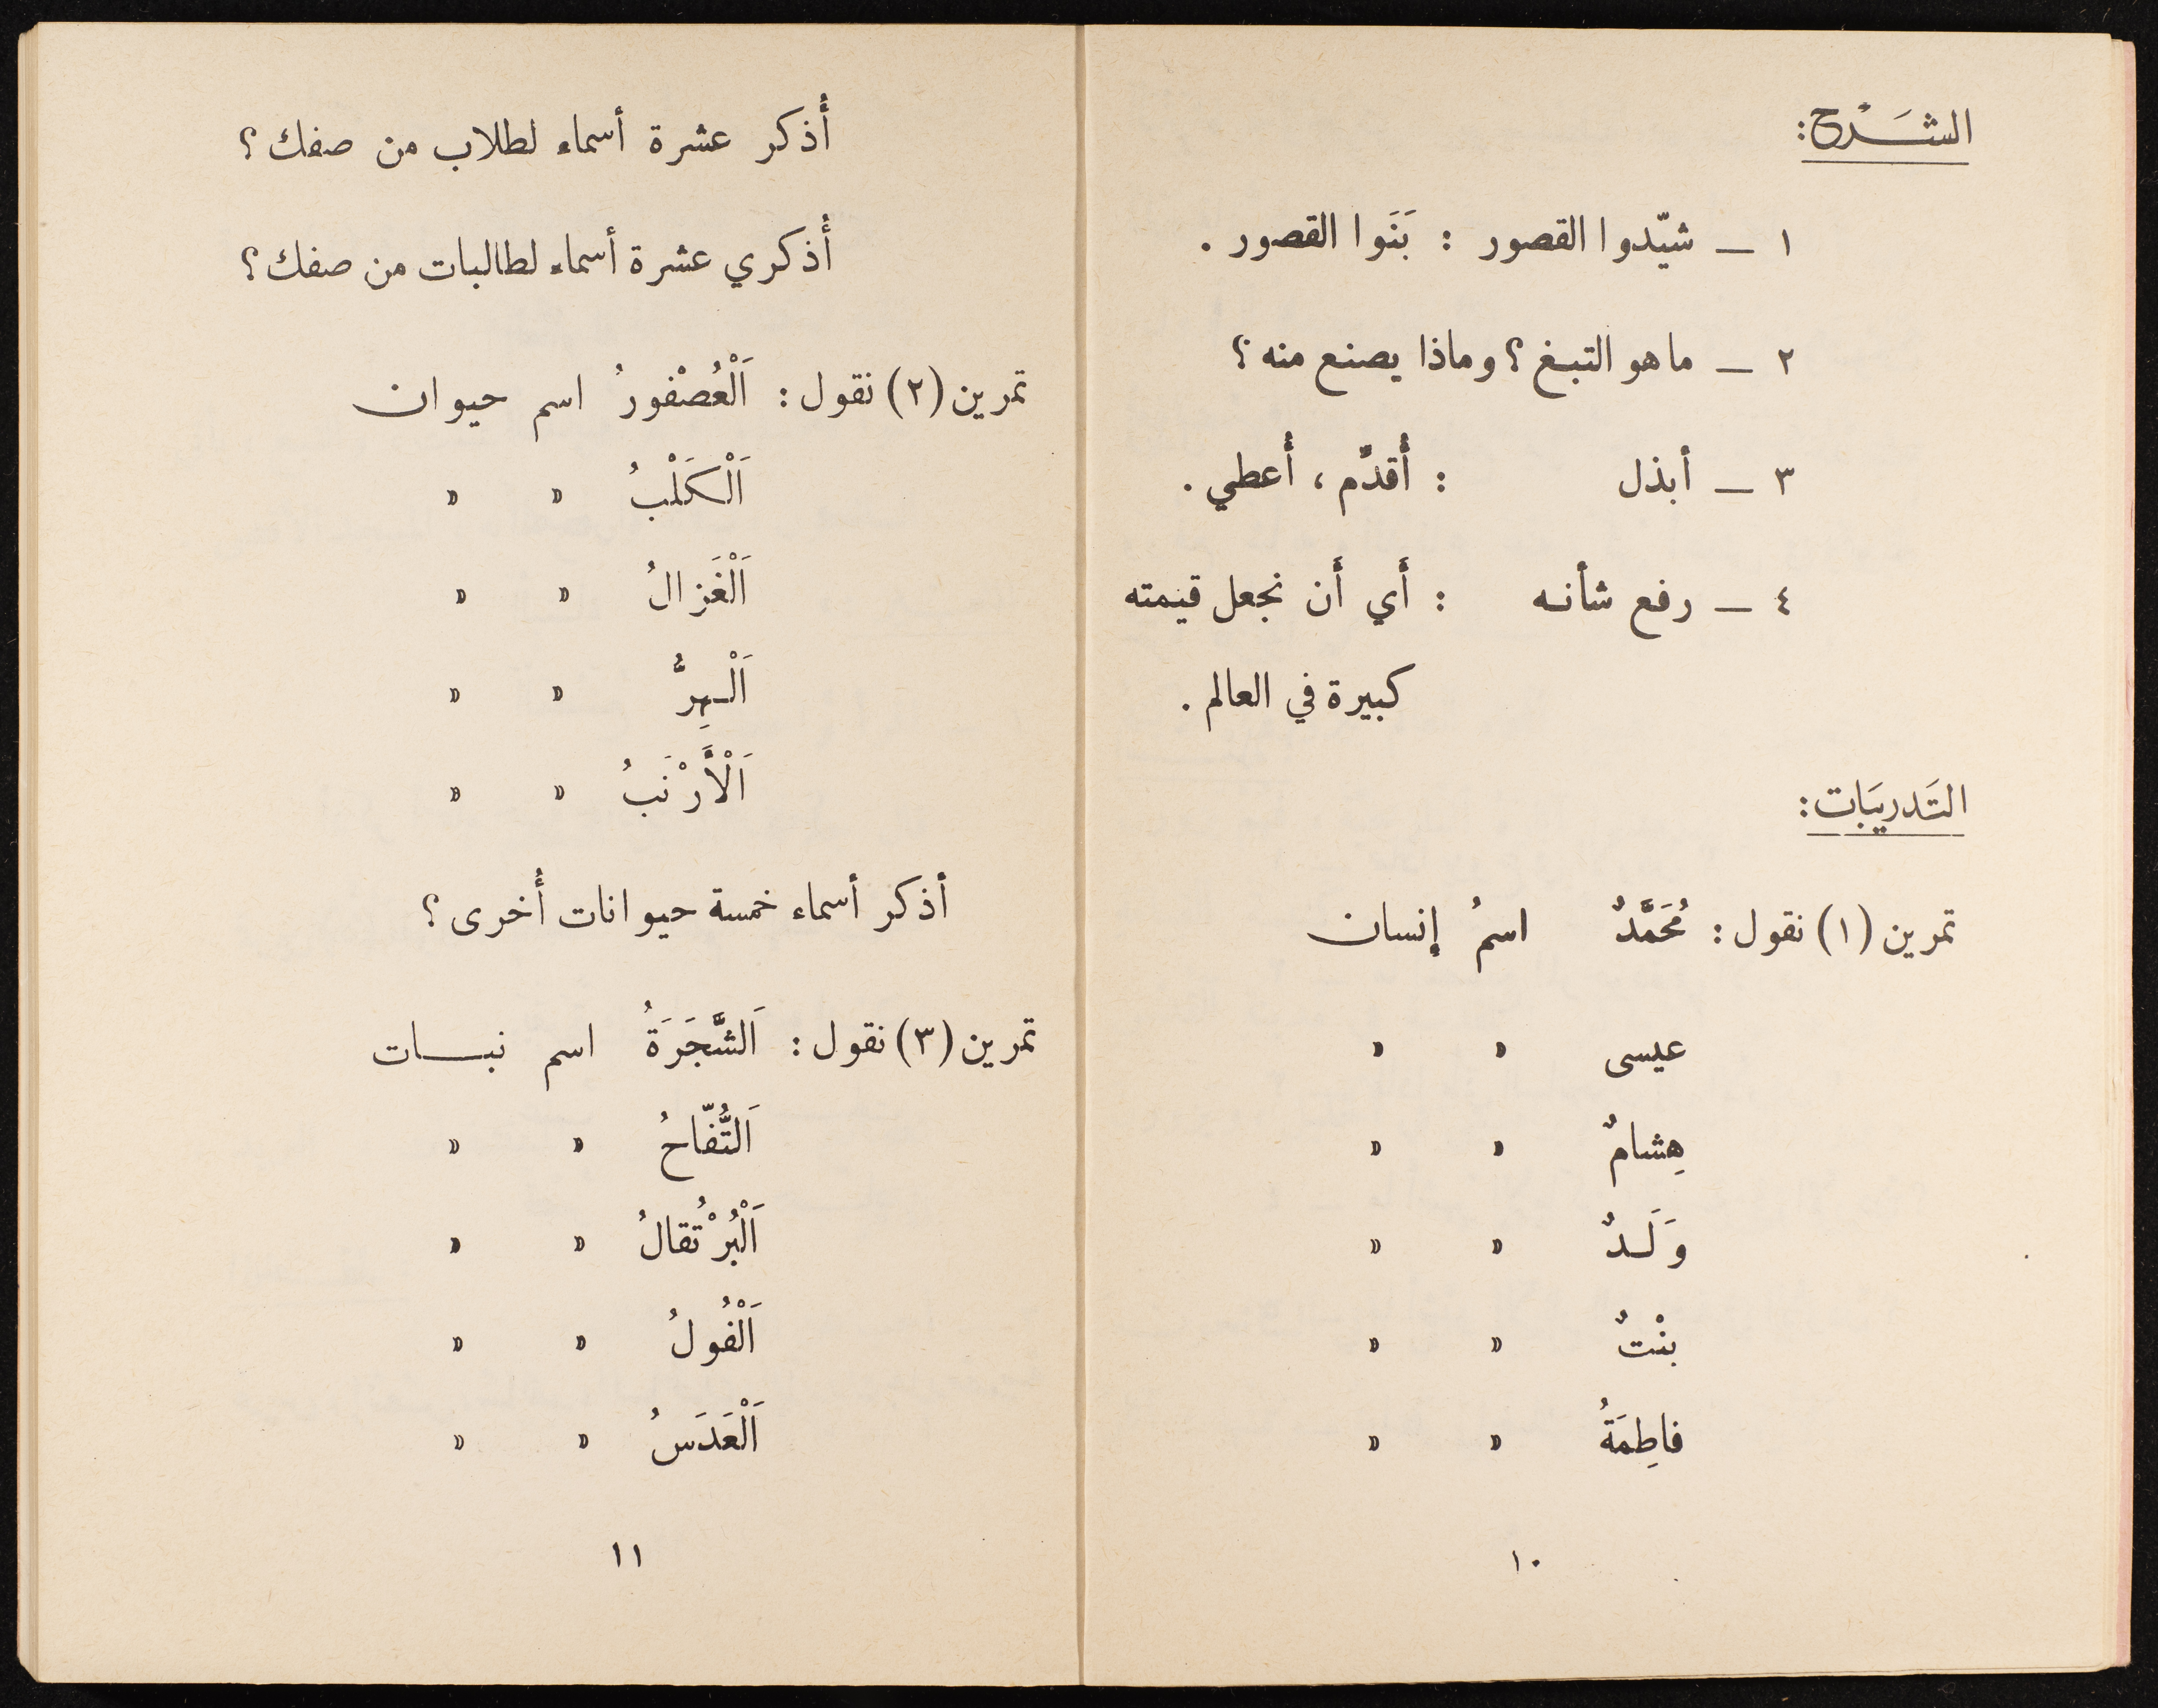 الشَـرْح:
١ — شيّدوا القصور : بَنَوا القصور .
٢ — ما هو التبغ ؟ وماذا يصنع منه ؟
٣ — أبذل : أُقدّم ، أُعطي .
٤ — رفع شأنـه : أَي أَن نجعل قيمته
كبيرة في العالم .
التَدريَبات:
تمرين (١) نقول : مُحَمَّدٌ اسمُ إنسان
عيسى » »
هِشامٌ » »
وَلَـدٌ » »
بنْتٌ » »
فاطِمَةُ » »
١٠
أُذكر عشرة أسماء لطلاب من صفك ؟
أُذكري عشرة أسماء لطالبات من صفك ؟
تمرين (٢) نقول : اَلْعُصْفورُ اسم حيوان
اَلْكَلْبُ » »
اَلْغَزالُ » »
اَلْـهِرُّ » »
اَلْأَرْنَبُ » »
أذكر أسماء خمسة حيوانات أُخرى ؟
تمرين (٣) نقول : اَلشَّجَرَةُ اسم نبـــات
اَلتُّفّاحُ » »
اَلْبُرْتُقالُ » »
اَلْفُولُ » »
اَلْعَدَسُ » »
١١